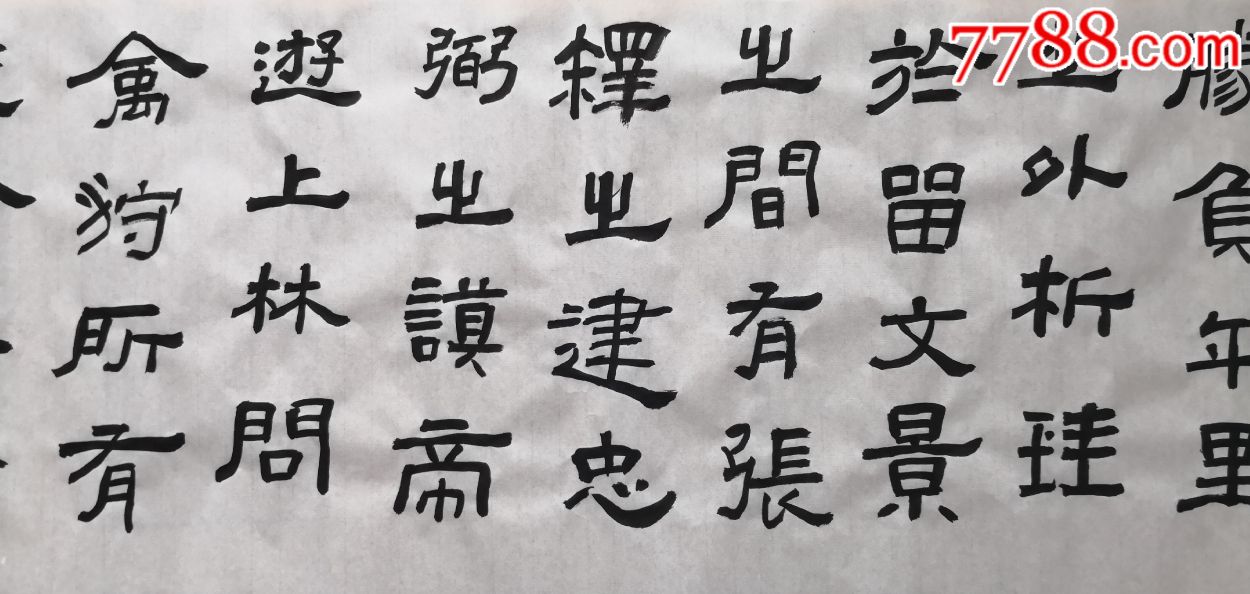 勝負年里
之外析珪
於留文景
之間有張
釋之建忠
弼之謨帝
遊上林問
禽狩所有
7788.com